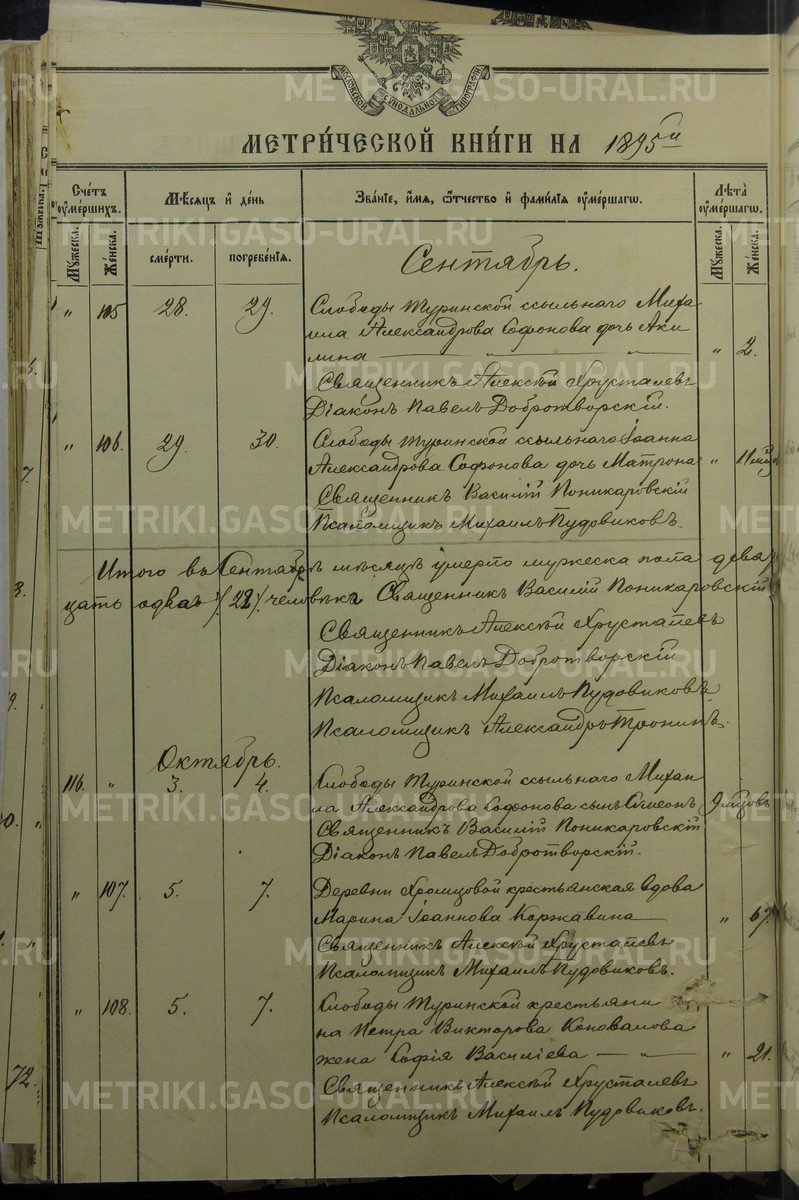 МОСКОВСКОЙ СѴНОДАЛЬНОЙ ТИПОГРАФІИ
МЕТРИ́ЧЕСКОЙ КНИ́ГИ НА 1895й
Счетъ ѹмершихъ.
Мѣсяцъ и день
Званіе, имя, ѿтчество и фамилія ѹмершагѡ.
Лѣта ѹмершагѡ.
Мужеска.
Женска.
смерти.
погребенія.
Мужеска.
Женска.
Сентябрь.
" 105 28. 29. Слободы Туринской ссыльнаго Миха
ила Александрова Софонова дочь Аки
лина — " — " " 2.
Священникъ Алексѣй Хрусталевъ
Діаконъ Павелъ Добротворскій.
" 106. 29. 30. Слободы Туринской ссыльнаго Іоанна
Александрова Софонова дочь Матрона "
Священникъ Василій Поникаровскій
Псаломщикъ Михаилъ Пудовиковъ.
Итого въ Сентябрѣ мѣсяцѣ умерло мужеска пола двад
цать одинъ /21/ человѣкъ Священникъ Василій Поникаровскій
Священникъ Алексѣй Хрусталевъ
Діаконъ Павелъ Добротворскій
Псаломщикъ Михаилъ Пудовиковъ
Псаломщикъ Александръ Тронинъ.
Октябрь.
116. " 3. 4. Слободы Туринской ссыльнаго Михаи
ла Александрова Софонова сынъ Симеонъ 9 мцовъ
Священникъ Василій Поникаровскій
Діаконъ Павелъ Добротворскій.
" 107. 5. 7. Деревни Хромцовой крестьянская вдова
Марина Іоаннова Коржавина — " 67.
Священникъ Алексѣй Хрусталевъ
Псаломщикъ Михаилъ Пудовиковъ.
" 108. 5. 7. Слободы Туринской крестьяни
на Петра Викторова Коновалова
жена Софія Василіева — " — " 21.
Священникъ Алексѣй Хрусталевъ
Псаломщикъ Михаилъ Пудовиковъ.
72.
METRIKI.GASO-URAL.RU